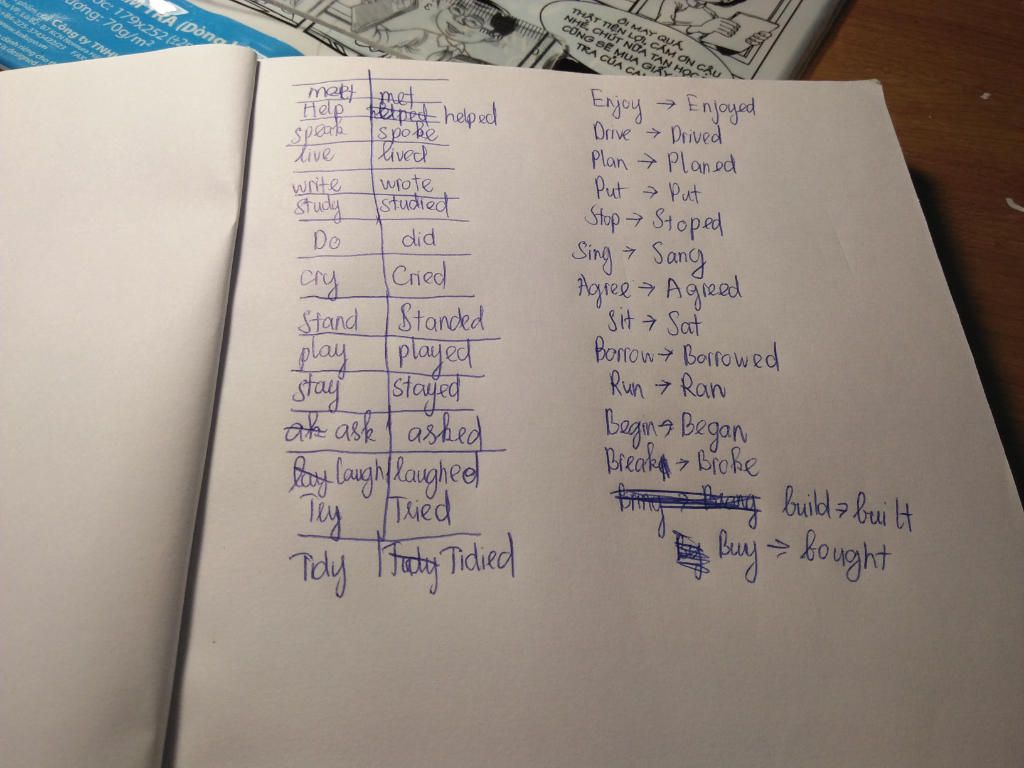 ƯỚC: 179x252
lượng: 70g/m²
Công ty TNHH
ÔI MAY QUÁ
THẬT TIỆN LỢI CẢM ƠN CẬU
NHÉ CHÚT NỮA TAN HỌC
CŨNG SẼ MUA GIẤY
TRA CỦA
meet met
Help helped helped
speak spoke
live lived
write wrote
study studied
Do did
cry Cried
Stand Standed
play played
stay Stayed
ak ask asked
lay laugh laughed
Try Tried
Tidy Tudy Tidied
Enjoy → Enjoyed
Drive → Drived
Plan → Planed
Put → Put
Stop → Stoped
Sing → Sang
Agree → Agreed
Sit → Sat
Borrow → Borrowed
Run → Ran
Begin → Began
Break → Broke
Bring → Brang build → built
Buy → bought